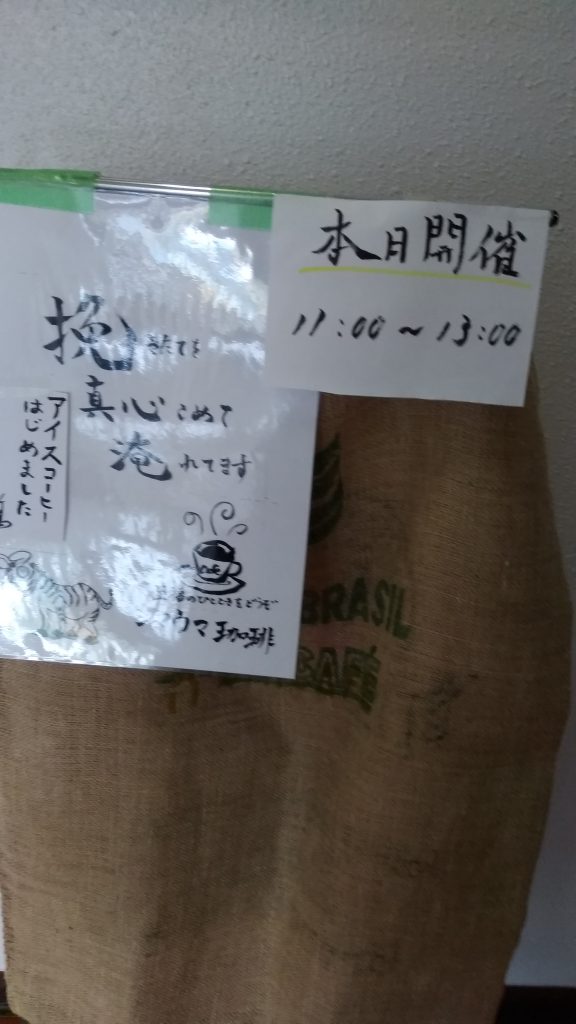 本日開催
11:00~13:00
挽きたてを
真心こめて
淹れてます
アイスコーヒー
はじめました
cafe
のひとときをどうぞ
ウマ珈琲
BRASIL
CAFÉ